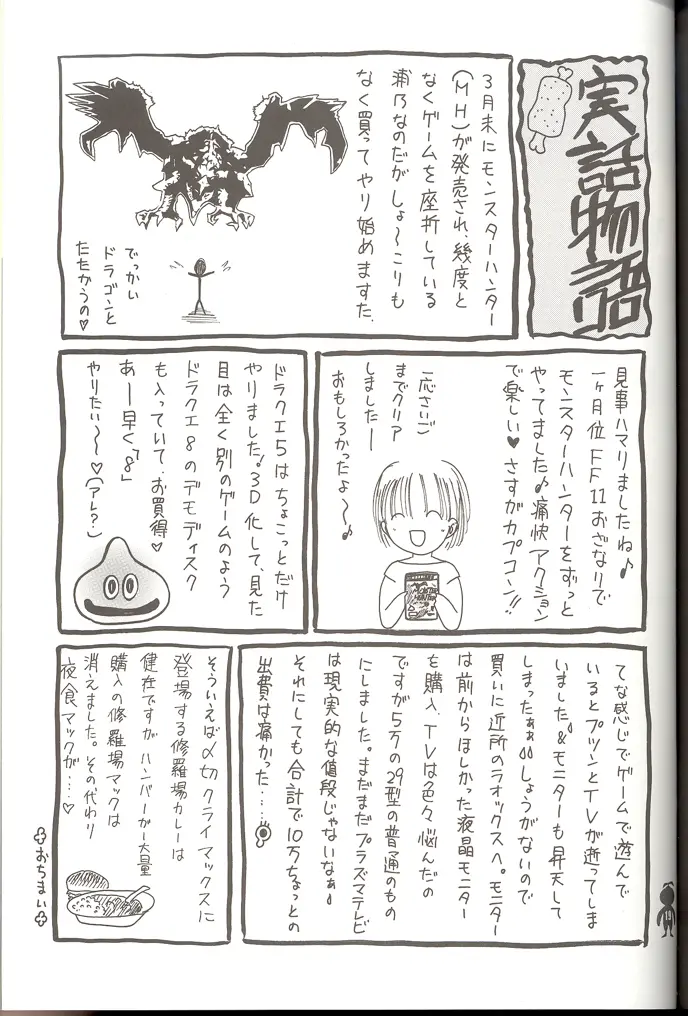 実話物語
3月末にモンスターハンター
(MH)が発売され、幾度と
なくゲームを座折している
浦乃なのだがしょ〜こりも
なく買ってやり始めますた.
でっかい
ドラゴンと
たたかうの♡
見事ハマリましたね♪
一ヶ月位FF11おざなりで
モンスターハンターをずっと
やってました♪痛快アクション
で楽しい♥さすがカプコン!!
一応さいご
までクリア
しましたー
おもしろかったよ〜♪
MONSTER
HUNTER
ドラクエ5はちょこっとだけ
やりました!3D化して、見た
目は全く別のゲームのよう
ドラクエ8のデモディスク
も入っていて、お買得♥
あー早く「8」
やりたい〜〜♡(アレ?)
てな感じでゲームで遊んで
いるとプツンとTVが逝ってしま
いました。&モニターも昇天して
しまったぁぁ しょうがないので
買いに近所のラオックスへ。モニター
は前からほしかった液晶モニター
を購入、TVは色々悩んだの
ですが5万の29型の普通のもの
にしました。まだまだプラズマテレビ
は現実的な値段じゃないなぁ
それにしても合計で10万ちょっとの
出費は痛かった……
そういえば〆切クライマックスに
登場する修羅場カレーは
健在ですが ハンバーガー大量
購入の修羅場マックは
消えました。その代わり
夜食マックが……♡
おちまい
19